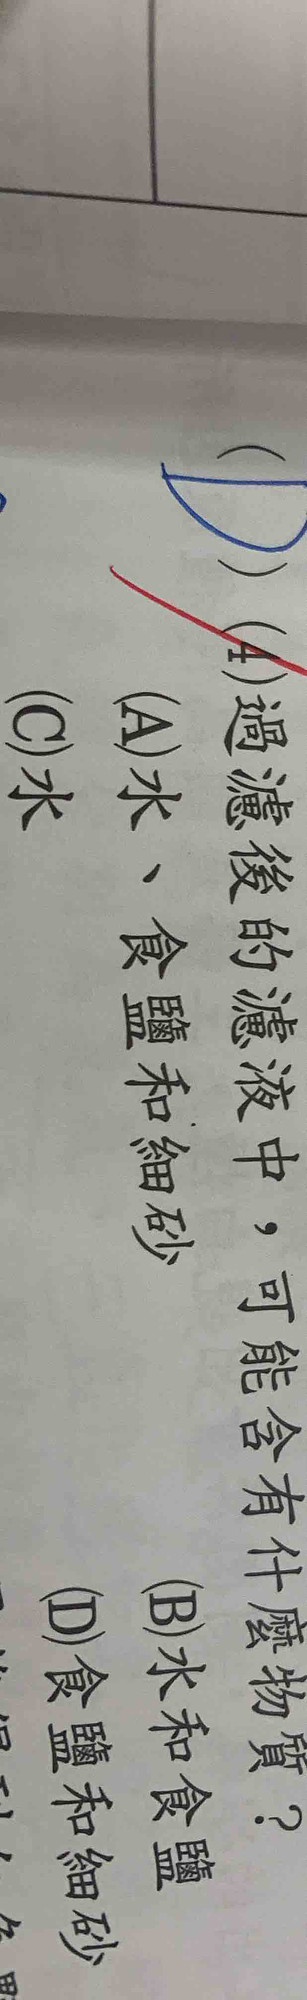 (D) (4)過濾後的濾液中，可能含有什麼物質？
(A)水、食鹽和細砂 (B)水和食鹽
(C)水 (D)食鹽和細砂